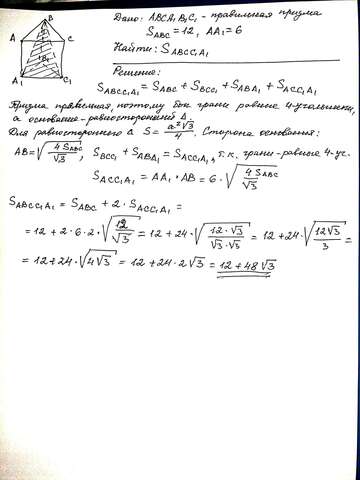 Дано: ABCA₁B₁C₁ - правильная призма
S_ABC = 12, AA₁ = 6
Найти: S_ABCC₁A₁
B
A C
B₁
A₁ C₁
Решение:
S_ABCC₁A₁ = S_ABC + S_BCC₁ + S_ABA₁ + S_ACC₁A₁
Призма правильная, поэтому бок. грани равные 4-угольники,
а основание - равносторонний Δ.
Для равностороннего Δ S = a²√3/4. Сторона основания:
AB = √(4S_ABC/√3), S_BCC₁ + S_ABA₁ = S_ACC₁A₁, т.к. грани - равные 4-уг.
S_ACC₁A₁ = AA₁ · AB = 6 · √(4S_ABC/√3)
S_ABCC₁A₁ = S_ABC + 2 · S_ACC₁A₁ =
= 12 + 2 · 6 · 2 · √(12/√3) = 12 + 24 · √(12·√3/√3·√3) = 12 + 24 · √(12√3/3) =
= 12 + 24 · √(4√3) = 12 + 24 · 2√3 = 12 + 48√3